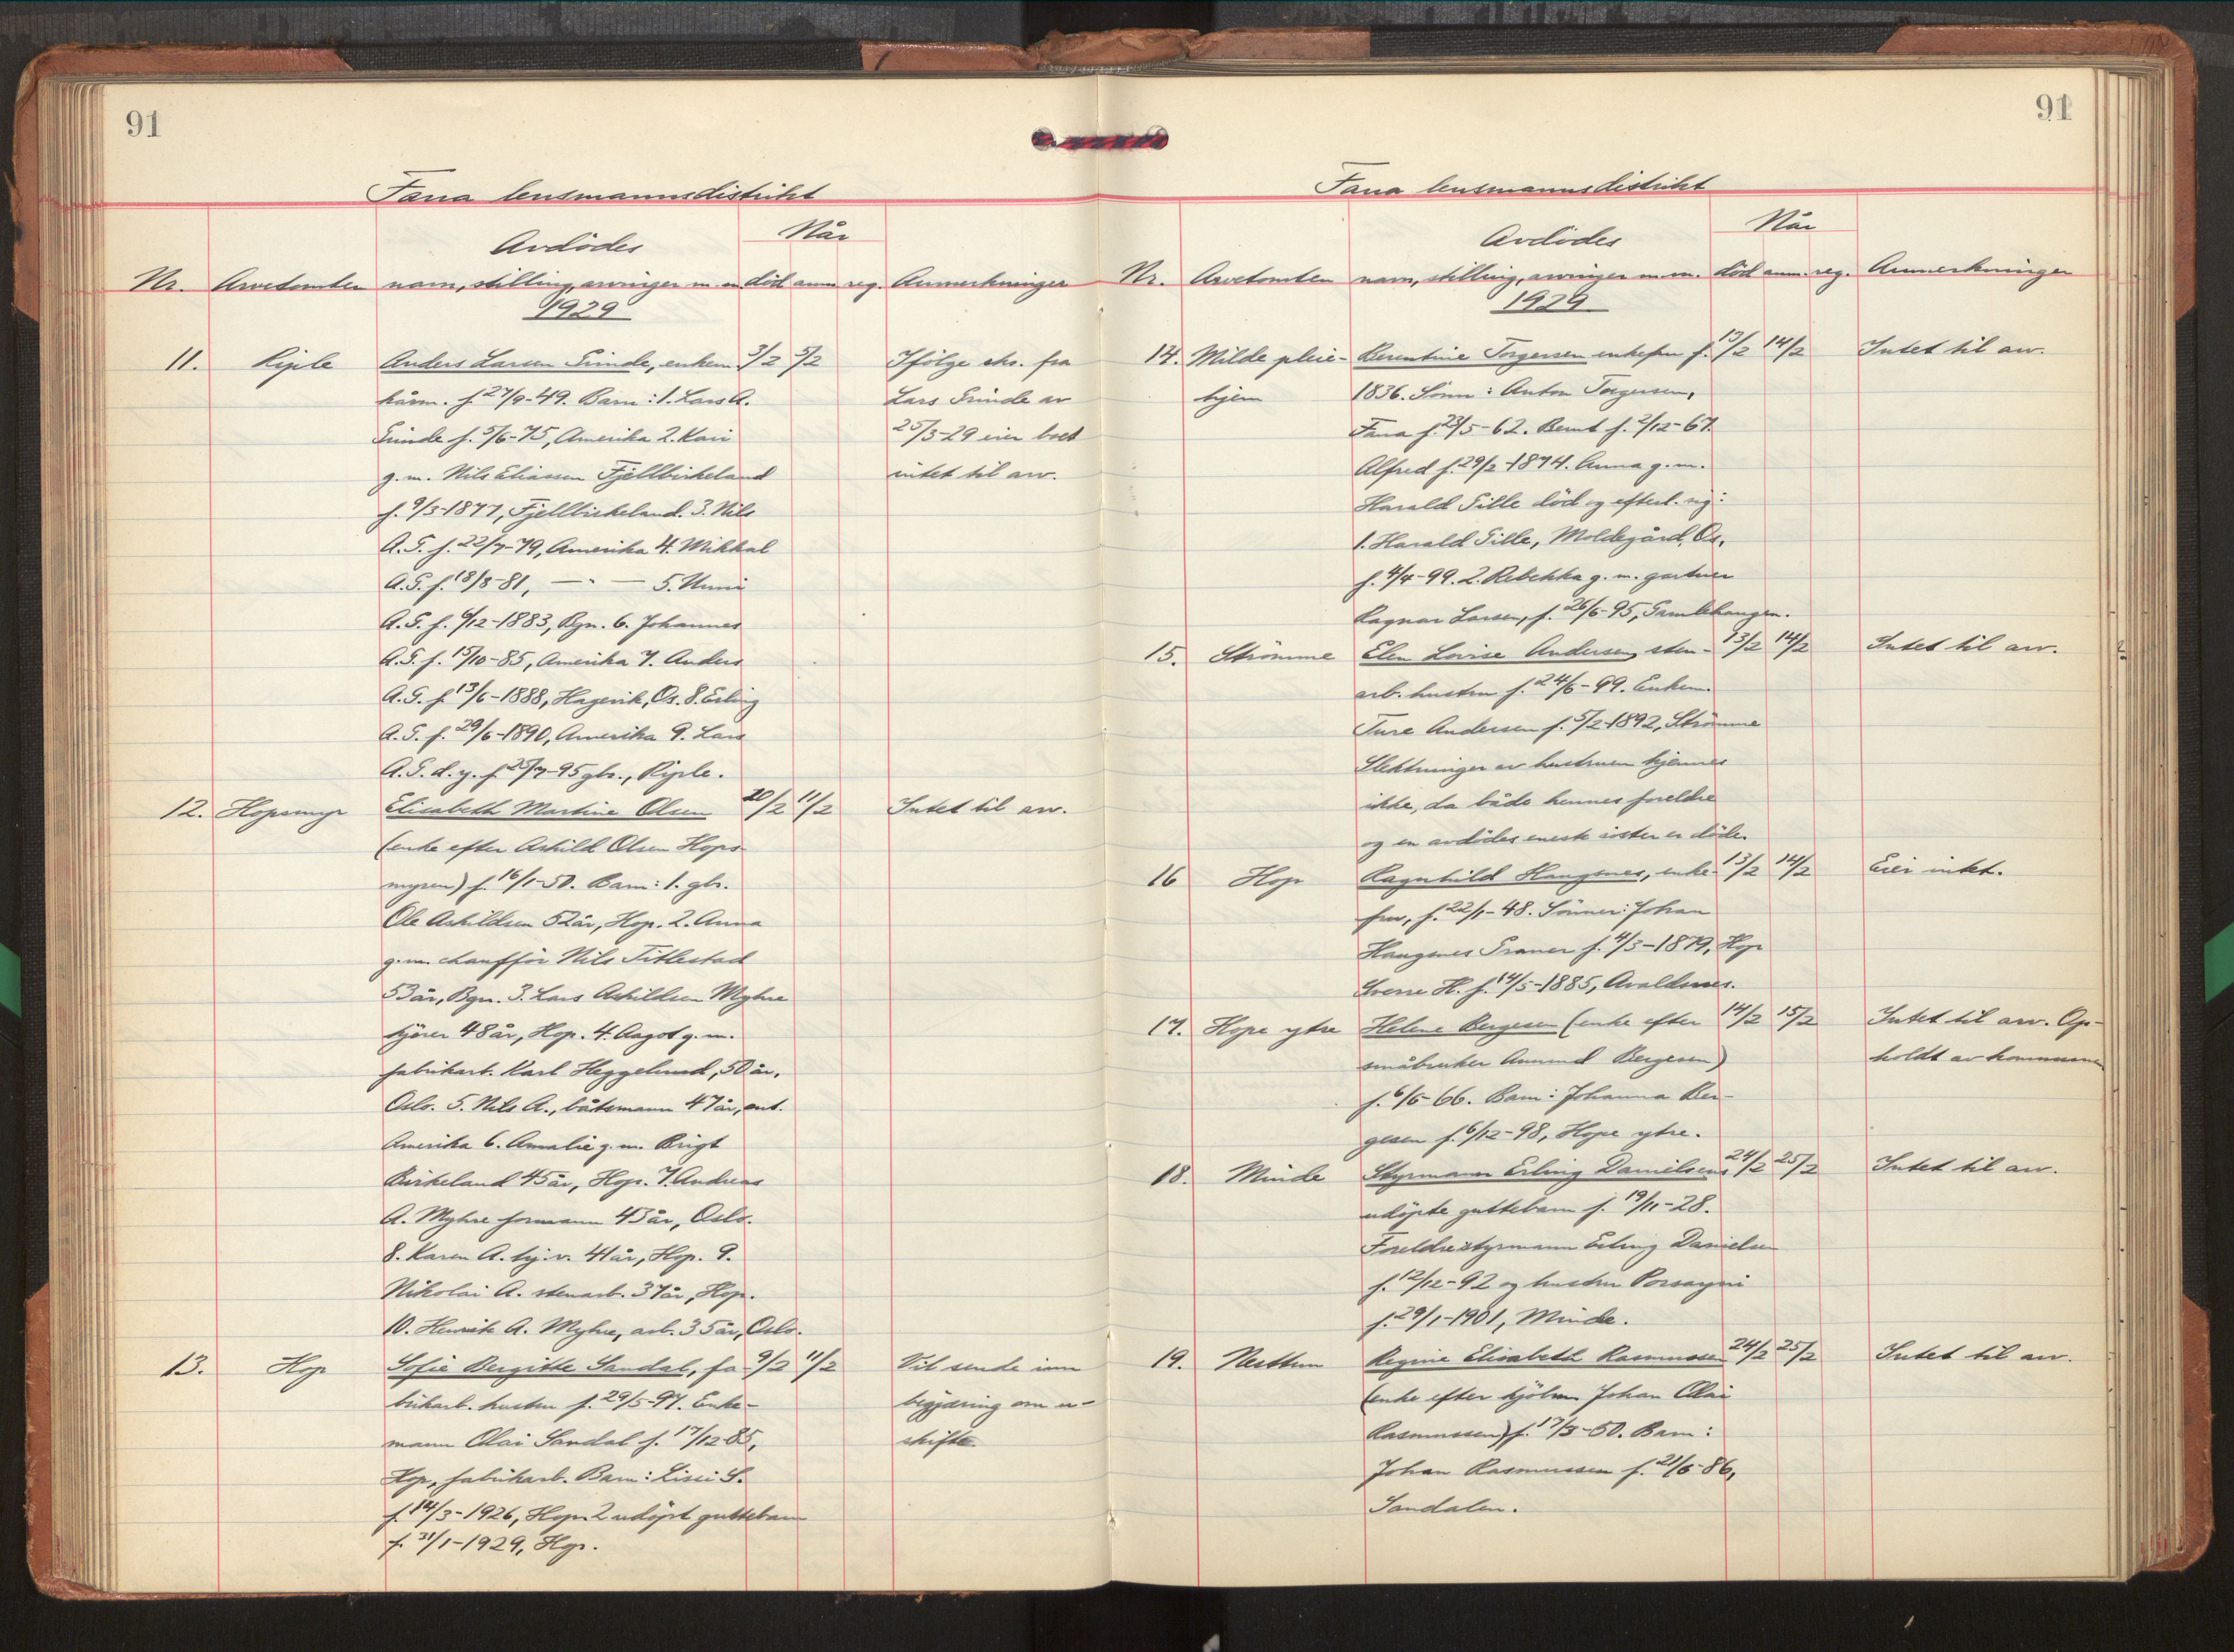 91
Fana lensmannsdistrikt
Når
Avdödes
Nr. Arvetomten navn, stilling, arvinger m.m. död anm. reg. Anmerkninger
1929
11. Riple Anders Larsen Grinde, enkem. 3/2 5/2 Ifölge skr. fra
kårm. f. 27/9-49. Barn: 1. Lars A. Lars Grinde av
Grinde f. 5/6-75, Amerika 2. Kari 25/3-29 eier boet
g.m. Nils Eliassen Fjellbirkeland intet til arv.
f. 9/3-1877, Fjellbirkeland. 3. Nils
A.G. f. 22/7-79, Amerika 4. Mikkal
A.G. f. 18/8-81, — " — 5. Unni
A.G. f. 6/12-1883, Bgn. 6. Johannes
A.G. f. 15/10-85, Amerika 7. Anders
A.G. f. 13/6-1888, Hagevik, Os. 8. Erling
A.G. f. 29/6-1890, Amerika 9. Lars
A.G. d.y. f. 25/7-95 gbr., Riple.
12. Hopsmyr Elisabeth Martine Olsen 20/2 11/2 Intet til arv.
(enke efter Askild Olsen Hops-
myren) f. 16/1-50. Barn: 1. gbr.
Ole Askildsen 52 år, Hop. 2. Anna
g.m. chaufför Nils Titlestad
53 år, Bgn. 3. Lars Askildsen Myhre
kjörer 48 år, Hop. 4. Aagot g.m.
fabrikarb. Karl Heggelund, 50 år,
Oslo. 5. Nils A., båtsmann 47 år, ent.
Amerika 6. Annalie g.m. Brigt
Birkeland 45 år, Hop. 7. Andreas
A. Myhre formann 43 år, Oslo.
8. Karen A. hj.v. 41 år, Hop. 9.
Nikolai A. stenarb. 37 år, Hop.
10. Henrik A. Myhre, arb. 35 år, Oslo.
13. Hop Sofie Bergitte Sandal, fa- 9/2 11/2 Vil sende inn
brikarb. hustru f. 29/5-97. Enke- begjæring om u-
mann Olai Sandal f. 17/12-85, skifte.
Hop, fabrikarb. Barn: Lissi S.
f. 14/3-1926, Hop. 2 udöpt guttebarn
f. 31/1-1929, Hop.
91
Fana lensmannsdistrikt
Når
Avdödes
Nr. Arvetomten navn, stilling, arvinger m.m. död anm. reg. Anmerkninger
1929
14. Milde pleie- Berentine Torgersen enkefru f. 13/2 14/2 Intet til arv.
hjem 1836. Sönn: Anton Torgersen,
Fana f. 23/5-62. Bernt f. 2/12-67.
Alfred f. 29/2-1874. Anna g.m.
Harald Gille död og efterl. sig:
1. Harald Gille, Moldegård, Os,
f. 4/4-99. 2. Rebekka g.m. gartner
Ragnar Larsen, f. 26/6-95, Gamlehaugen.
15. Strömme Elen Lovise Andersen, sten- 13/2 14/2 Intet til arv.
arb. hustru f. 24/6-99. Enkem.
Ture Andersen f. 5/2-1892, Strömme
Slektninger av hustruen kjennes
ikke, da både hennes foreldre
og en avdödes eneste söster er döde.
16 Hop Ragnhild Haugsnes, enke- 13/2 14/2 Eier intet.
fru, f. 22/1-48. Sönner: Johan
Haugsnes Graner f. 4/3-1879, Hop
Sverre H. f. 14/5-1885, Avaldsnes.
17. Hope ytre Helene Bergesen (enke efter 14/2 15/2 Intet til arv. Op-
småbruker Anund Bergesen) holdt av kommunen
f. 6/5-66. Barn: Johanna Ber-
gesen f. 6/12-98, Hope ytre.
18. Minde Styrmann Erling Danielsens 24/2 25/2 Intet til arv.
udöpte guttebarn f. 19/11-28.
Foreldre styrmann Erling Danielsen
f. 12/12-92 og hustru
f. 29/1-1901, Minde.
19. Nesttun Regine Elisabeth Rasmussen 24/2 25/2 Intet til arv.
(enke efter Johan Olai
Rasmussen) f. 17/3-50. Barn:
Johan Rasmussen f. 21/6-86,
Sandalen.